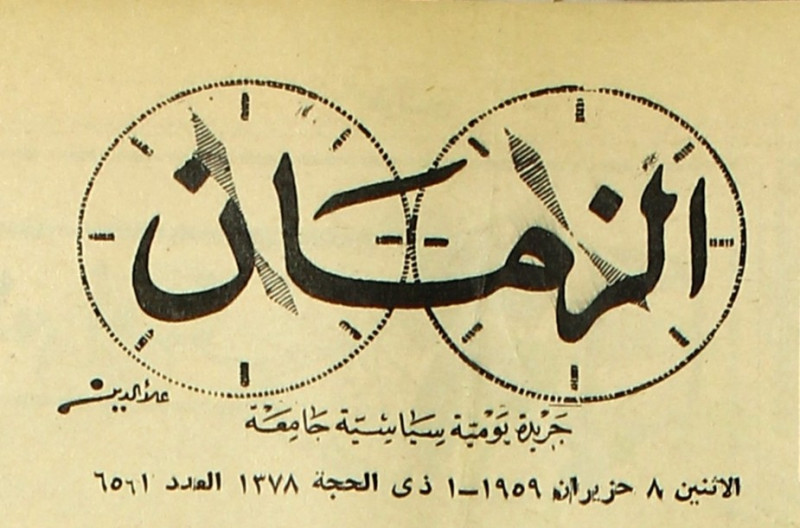 الزمان
علاء الدين
جَريْدة يَوْميّة سِيَاسِيّة جَامِعَة
الاثنين ٨ حزيران ١٩٥٩-١ ذى الحجة ١٣٧٨ العدد ٦٥٦١